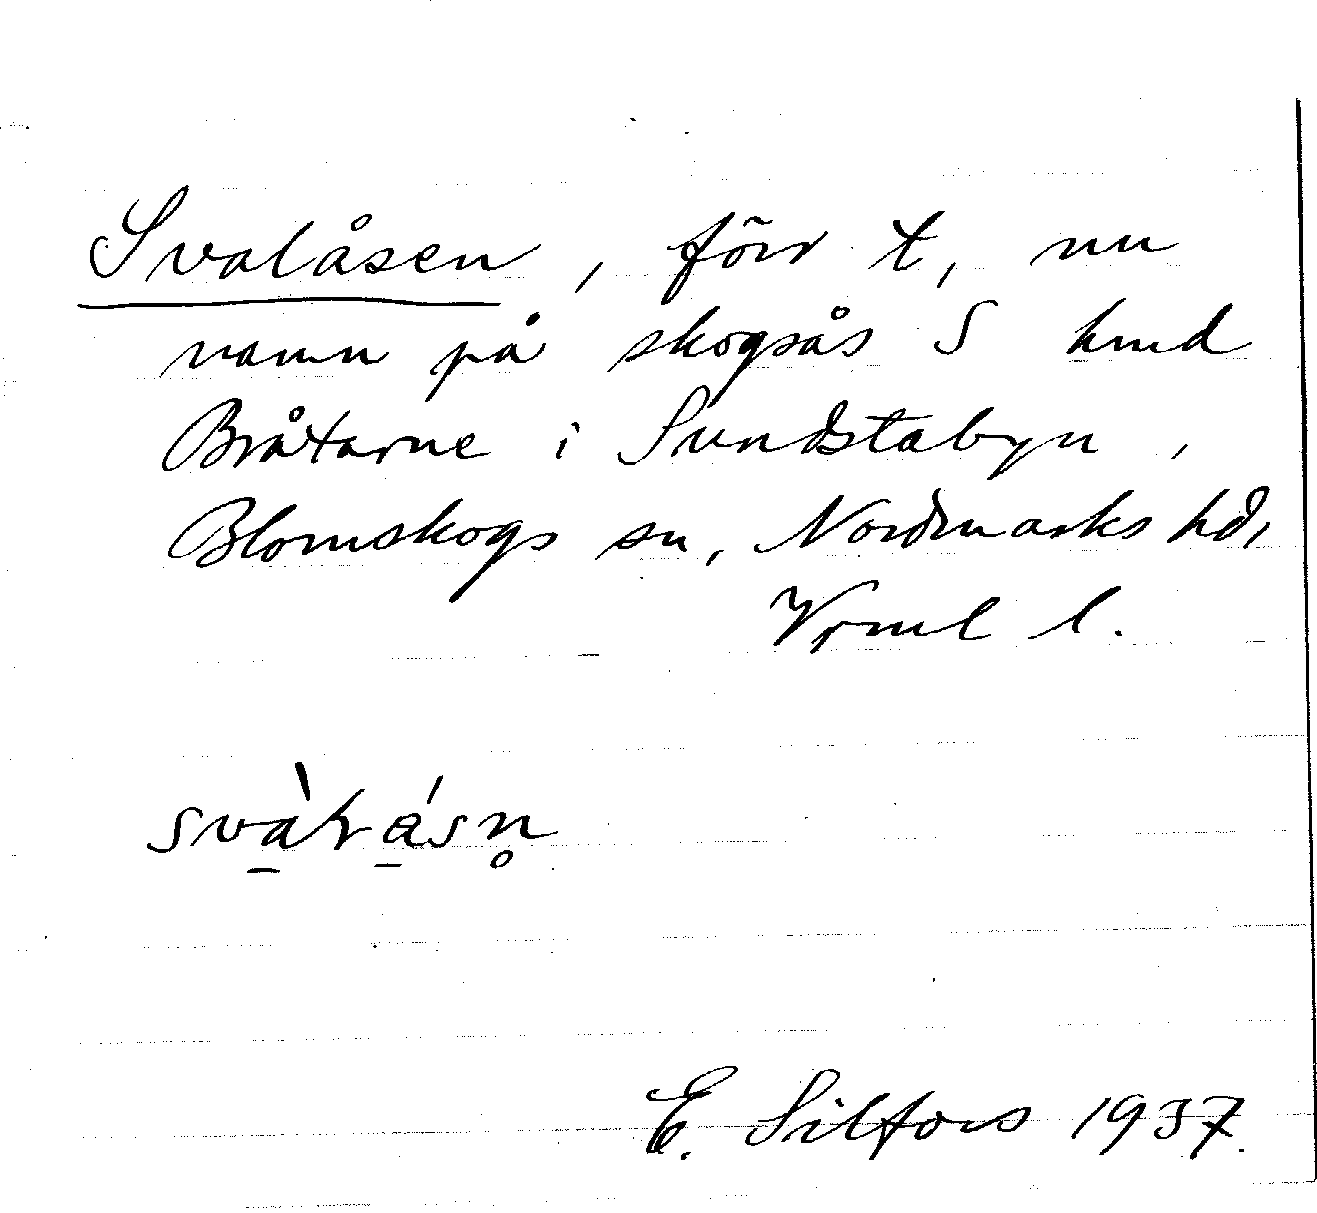 Svalåsen, förr t, nu
namn på skogsås S hmd
Bråtarne i Sundstabyn,
Blomskogs sn, Nordmarks hd,
Vrml l.
E. Silfors 1937.